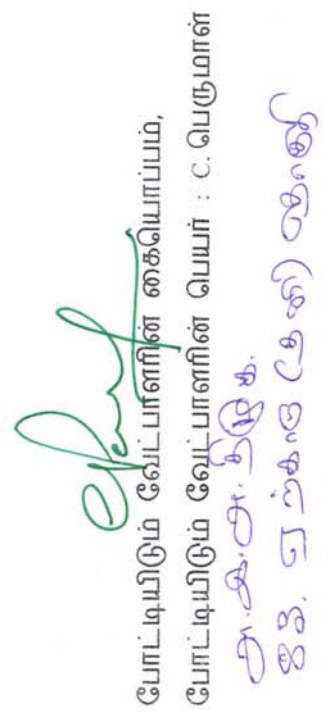 போட்டியிடும் வேட்பாளரின் கையொப்பம்,
போட்டியிடும் வேட்பாளரின் பெயர் : C. பெருமாள்
அ.இ.அ.தி.மு.க.
83. ஏற்காடு (தனி) தொகுதி